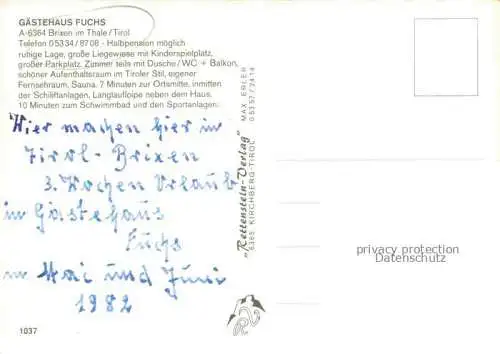 GÄSTEHAUS FUCHS
A-6364 Brixen im Thale/Tirol
Telefon 05334/8708 - Halbpension möglich
ruhige Lage, große Liegewiese mit Kinderspielplatz,
großer Parkplatz. Zimmer teils mit Dusche/WC + Balkon,
schöner Aufenthaltsraum im Tiroler Stil, eigener
Fernsehraum, Sauna. 7 Minuten zur Ortsmitte, inmitten
der Schiliftanlagen, Langlaufloipe neben dem Haus.
10 Minuten zum Schwimmbad und den Sportanlagen.
Wir machen hier in
Tirol-Brixen
3. Wochen Urlaub
im Gästehaus
Fuchs
im Mai und Juni
1982
1037
"Rettenstein-Verlag"
6365 KIRCHBERG-TIROL
MAX ERLER
05357/2414
privacy protection
Datenschutz